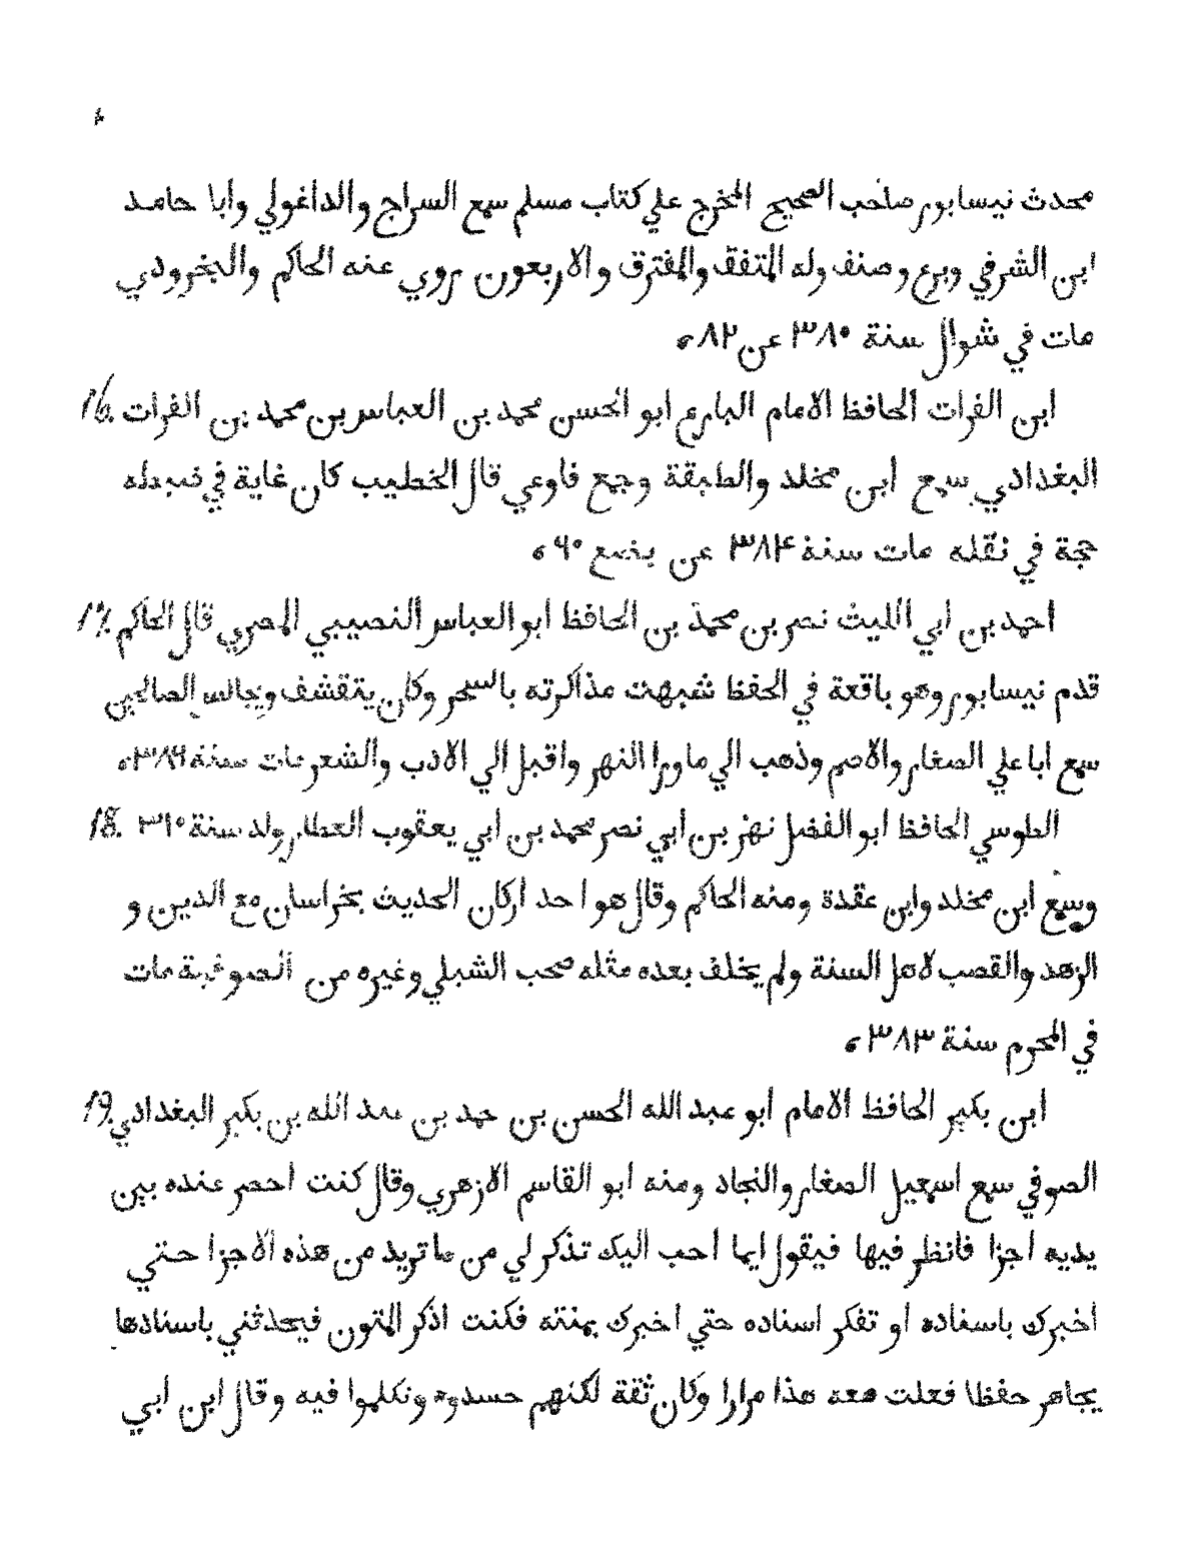 محدث نيسابور صاحب الصحيح المخرج علي كتاب مسلم سمع السراج والداغولي وابا حامد
ابن الشرفي وبرع وصنف وله المتفق والمفترق والاربعون روي عنه الحاكم والبخرودي
مات في شوال سنة ٣٨٠ عن ٨٢ ه
ابن الفرات الحافظ الامام البارع ابو الحسن محمد بن العباس بن محمد بن الفرات 16.
البغدادي سمع ابن مخلد والطبقة وجمع فاوعي قال الخطيب كان غاية في ضبطه
حجة في نقله مات سنة ٣٨٤ عن بضع ٦٠ ه
احمد بن ابي الليث نصر بن محمد بن الحافظ ابو العباس النصيبي المصري قال الحاكم 17.
قدم نيسابور وهو باقعة في الحفظ شبهت مذاكرته بالسحر وكان يتقشف ويجالس الصالحين
سمع ابا علي الصفار والاصم وذهب الي ماورا النهر واقبل الي الادب والشعر مات سنة ٣٨٦ ه
الطوسي الحافظ ابو الفضل نهز بن ابي نصر محمد بن ابي يعقوب العطار ولد سنة ٣١٠ 18.
وسمع ابن مخلد وابن عقدة ومنه الحاكم وقال هو احد اركان الحديث بخراسان مع الدين و
الزهد والقصب لاهل السنة ولم يخلف بعده مثله صحب الشبلي وغيره من الصوفية مات
في المحرم سنة ٣٨٣ ه
ابن بكير الحافظ الامام ابو عبد الله الحسن بن حمد بن عبد الله بن بكير البغدادي 19.
الصوفي سمع اسمعيل الصفار والنجاد ومنه ابو القاسم الازهري وقال كنت احصر عنده بين
يديه اجزا فانظر فيها فيقول ايما احب اليك تذكر لي من ما تريد من هذه الاجزا حتي
اخبرك باسناده او تفكر اسناده حتي اخبرك بمنته فكنت اذكر المتون فيحدثني باسنادها
يجاهر حفظا فعلت معه هذا مرارا وكان ثقة لكنهم حسدوه وتكلموا فيه وقال ابن ابي